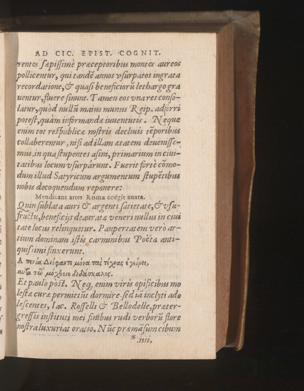 AD CIC. EPIST. COGNIT.
rentes sæpissimè præceptoribus montes aureos
pollicentur, qui tandē annos usurpatos ingrata
recordatione, & quasi beneficiorū lethargo gra
uentur, fluere sinunt. Tamen eos una res conso-
latur, quòd nullū maius munus Reip. adferri
potest, quàm informanda iuuentutis. Neque
enim eo respublica nostris decliuis tēporibus
collaberentur, nisi ad illam ætatem deuenisse-
mus, in qua stupentes asini, primarium in ciui-
tatibus locum usurparunt. Fuerit fortè cōmo-
dum illud Satyricum argumentum stupētibus
nobis decoquendum reponere:
Mendicans artes Roma coëgit
Quin sublata auri & argenti satietate, & usu-
fructu, beneficijs deærata veneri nullus in ciui
tate locus relinquitur. Paupertatem verò ar-
tium dominam istis carminibus Poëta anti-
quissimi finxerunt.
Α πενία Διόφαντε μόνα τὰς τέχνας ἐγείρει,
αὐτὰ τῶ μόχθοιο διδάσκαλος.
Et paulò pòst. Neq; enim viris opificibus mo
lesta cura permittit dormire. sed iā inclyti ado
lescentes, Iac. Rosselli & Bellodelle, præter-
gressis instituti mei finibus rudi verborū flore
nostra luxurias oratio. Nūc præmissum cibum
* iiij.